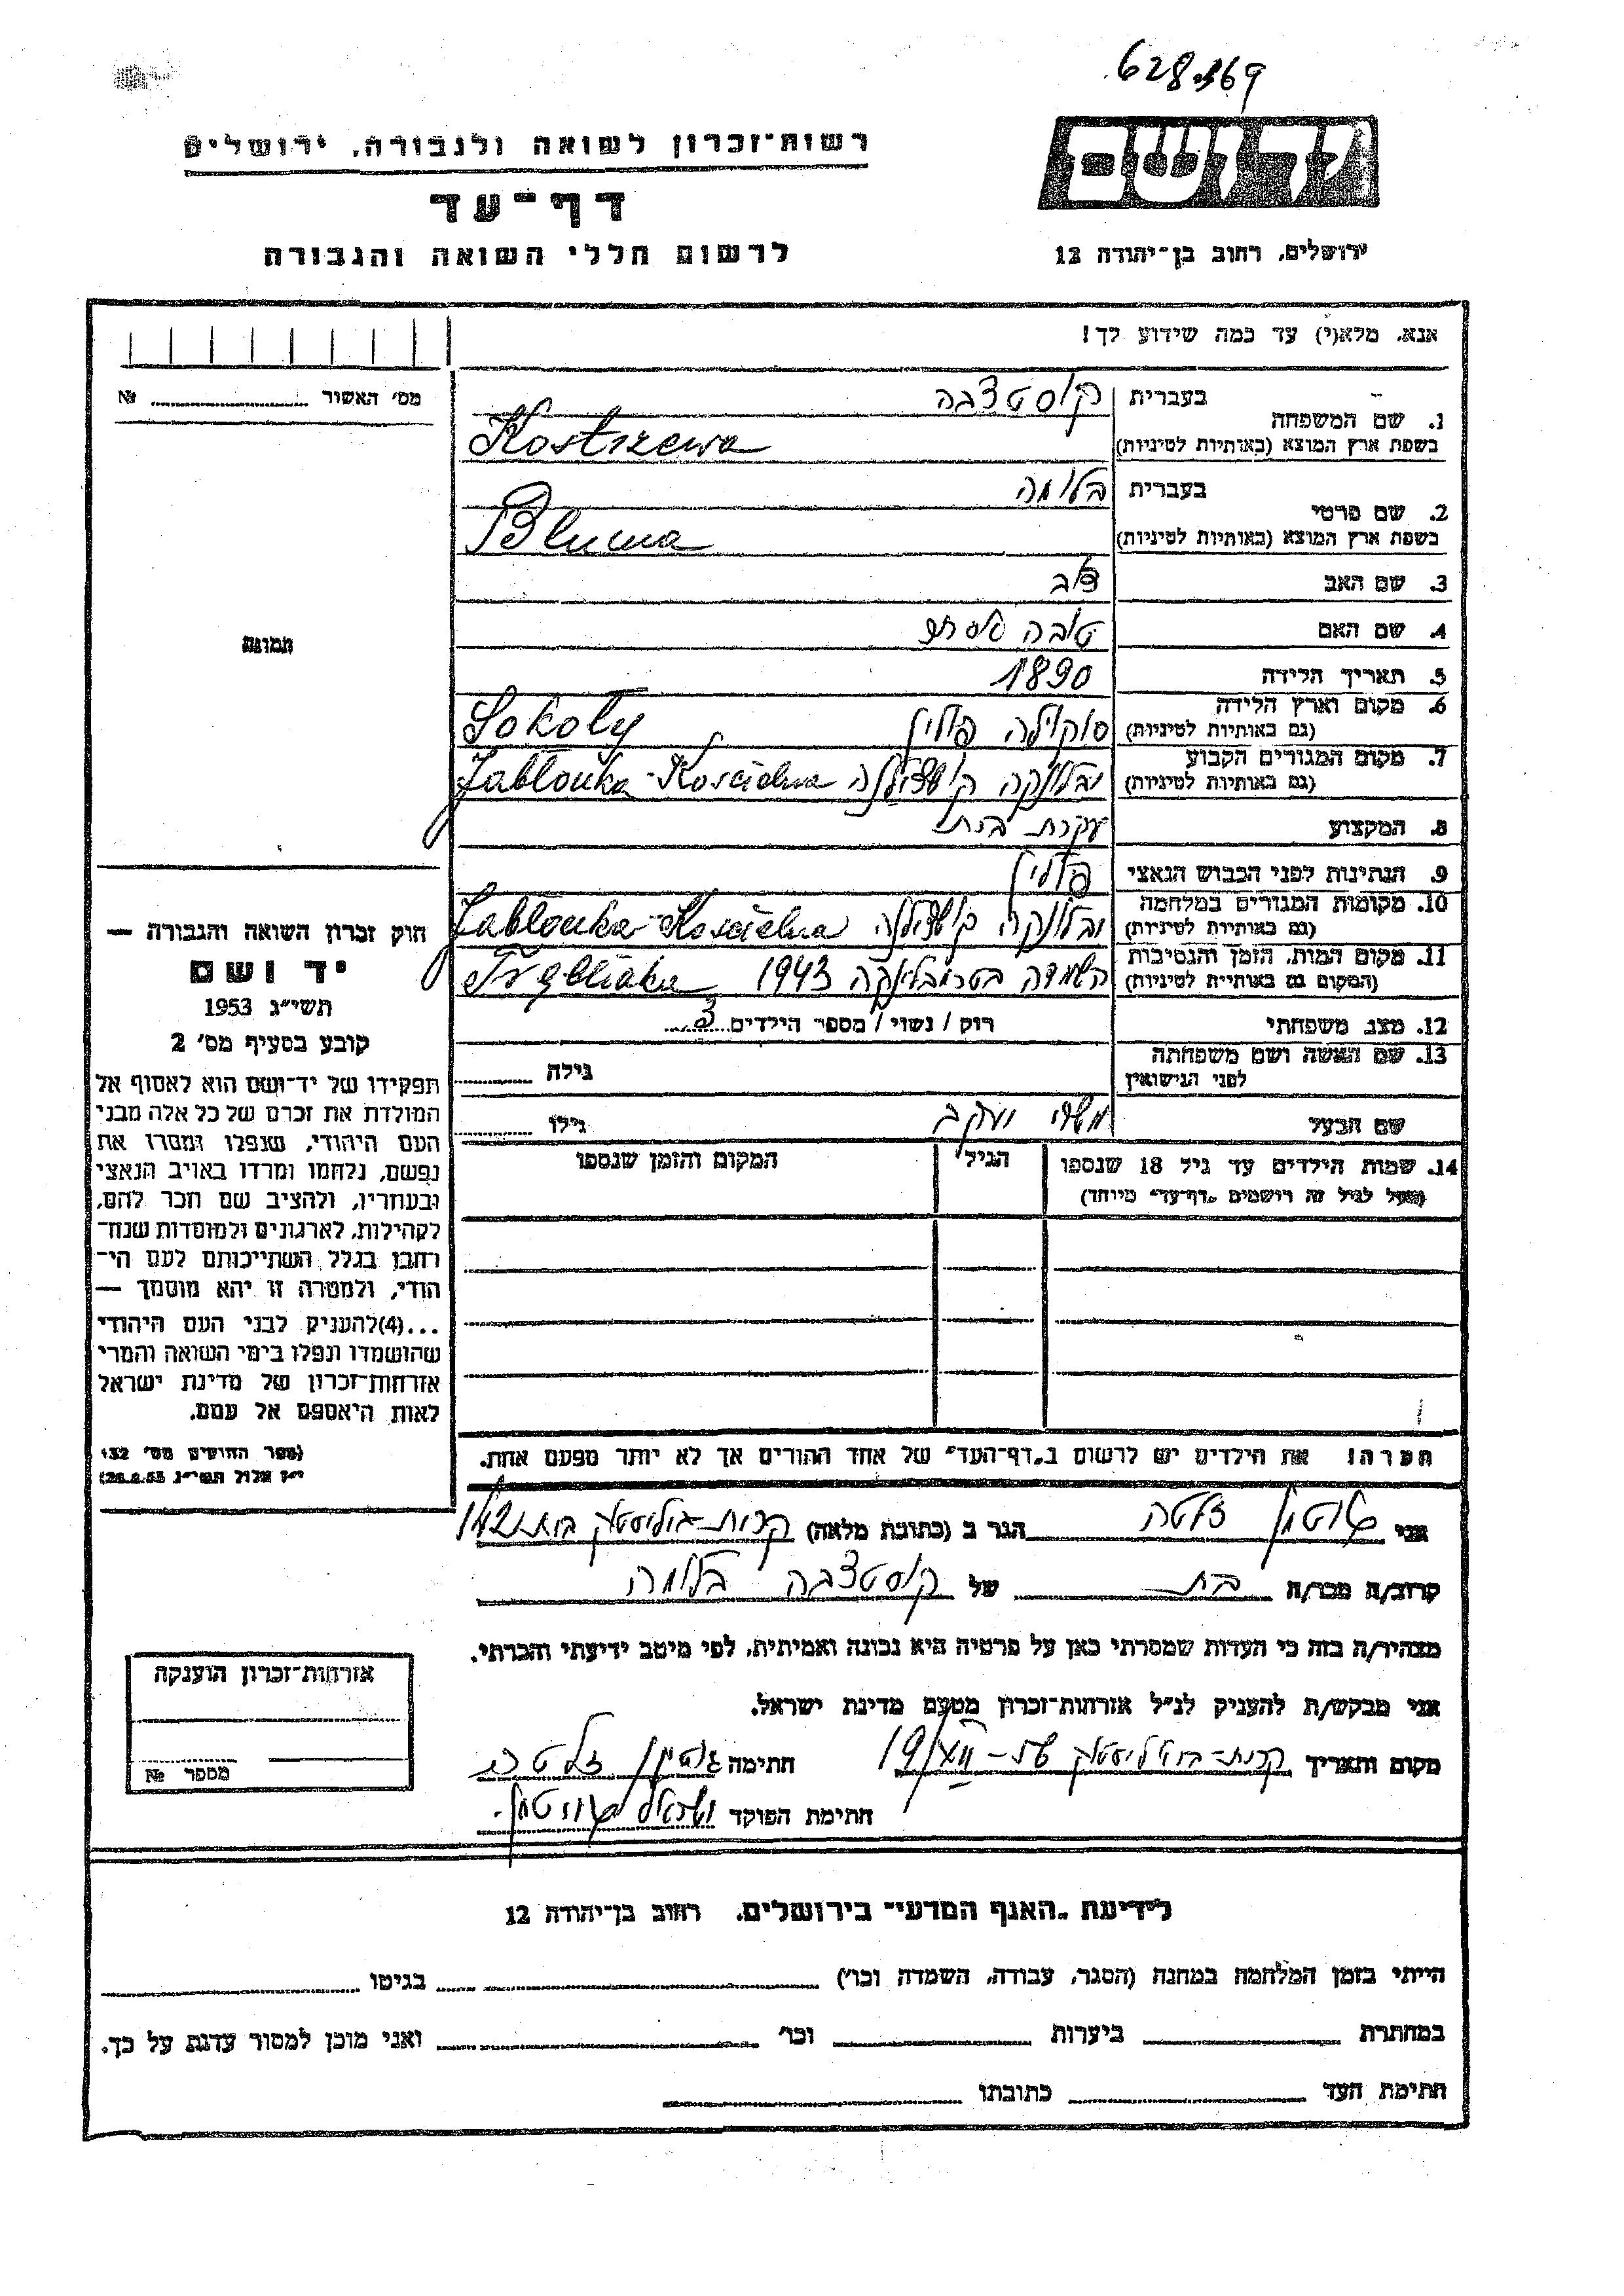 628369
רשות־זכרון לשואה ולגבורה, ירושלים
דף־עד
לרשום חללי השואה והגבורה
ירושלים, רחוב בן־יהודה 12
אנא, מלא(י) עד כמה שידוע לך!
מס' האשור № 
1. שם המשפחה
בעברית קוסטצבה
בשפת ארץ המוצא (באותיות לטיניות) Kostrzewa
2. שם פרטי
בעברית בלומה
בשפת ארץ המוצא (באותיות לטיניות) Bluma
3. שם האב
4. שם האם טובה
5. תאריך הלידה 1890
6. מקום וארץ הלידה (גם באותיות לטיניות) סוקולה פולין Sokoły
7. מקום המגורים הקבוע (גם באותיות לטיניות) Jabłonka-Kościelna
8. המקצוע עקרת בית
9. הנתינות לפני הכבוש הנאצי פולין
10. מקומות המגורים במלחמה (גם באותיות לטיניות) Jabłonka-Kościelna
11. מקום המות, הזמן והנסיבות (המקום גם באותיות לטיניות) 1943 Treblinka
12. מצב משפחתי רוק / נשוי / מספר הילדים 3
13. שם האשה ושם משפחתה לפני הנישואין גילה
שם הבעל יעקב גילו
14. שמות הילדים עד גיל 18 שנספו הגיל המקום והזמן שנספו
(מעל לגיל זה רושמים "דף־עד" מיוחד)
הערה: את הילדים יש לרשום ב"דף־העד" של אחד ההורים אך לא יותר מפעם אחת.
תמונה
חוק זכרון השואה והגבורה —
יד ושם
תשי"ג 1953
קובע בסעיף מס' 2
תפקידו של יד־ושם הוא לאסוף אל
המולדת את זכרם של כל אלה מבני
העם היהודי, שנפלו ומסרו את
נפשם, נלחמו ומרדו באויב הנאצי
ובעוזריו, ולהציב שם וזכר להם,
לקהילות, לארגונים ולמוסדות שנח־
רבו בגלל השתייכותם לעם הי־
הודי, ולמטרה זו יהא מוסמך —
...(4)להעניק לבני העם היהודי
שהושמדו ונפלו בימי השואה והמרי
אזרחות־זכרון של מדינת ישראל
לאות היאספם אל עמם.
(ספר החוקים מס' 132
י"ז אלול תשי"ג 28.8.53)
אני גוטמן זלטה הגר ב (כתובת מלאה)
קרוב/ה מכר/ה בת של קוסטצבה בלומה
מצהיר/ה בזה כי העדות שמסרתי כאן על פרטיה היא נכונה ואמיתית, לפי מיטב ידיעתי והכרתי.
אני מבקש/ת להעניק לנ"ל אזרחות־זכרון מטעם מדינת ישראל.
מקום ותאריך חתימה גוטמן זלטה
חתימת הפוקד
אזרחות־זכרון הוענקה
מספר №
לידיעת "האגף המדעי" בירושלים, רחוב בן־יהודה 12
הייתי בזמן המלחמה במחנה (הסגר, עבודה, השמדה וכו') בגיטו
במחתרת ביערות וכו' ואני מוכן למסור עדות על כך.
חתימת העד כתובתו